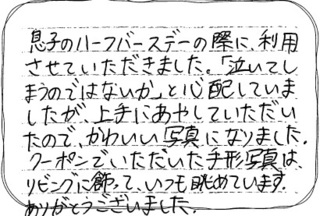 息子のハーフバースデーの際に、利用
させていただきました。「泣いてし
まうのではないか」と心配していま
したが、上手にあやしていただい
たので、かわいい写真になりました。
クーポンでいただいた手形写真は、
リビングに飾って、いつも眺めています。
ありがとうございました。